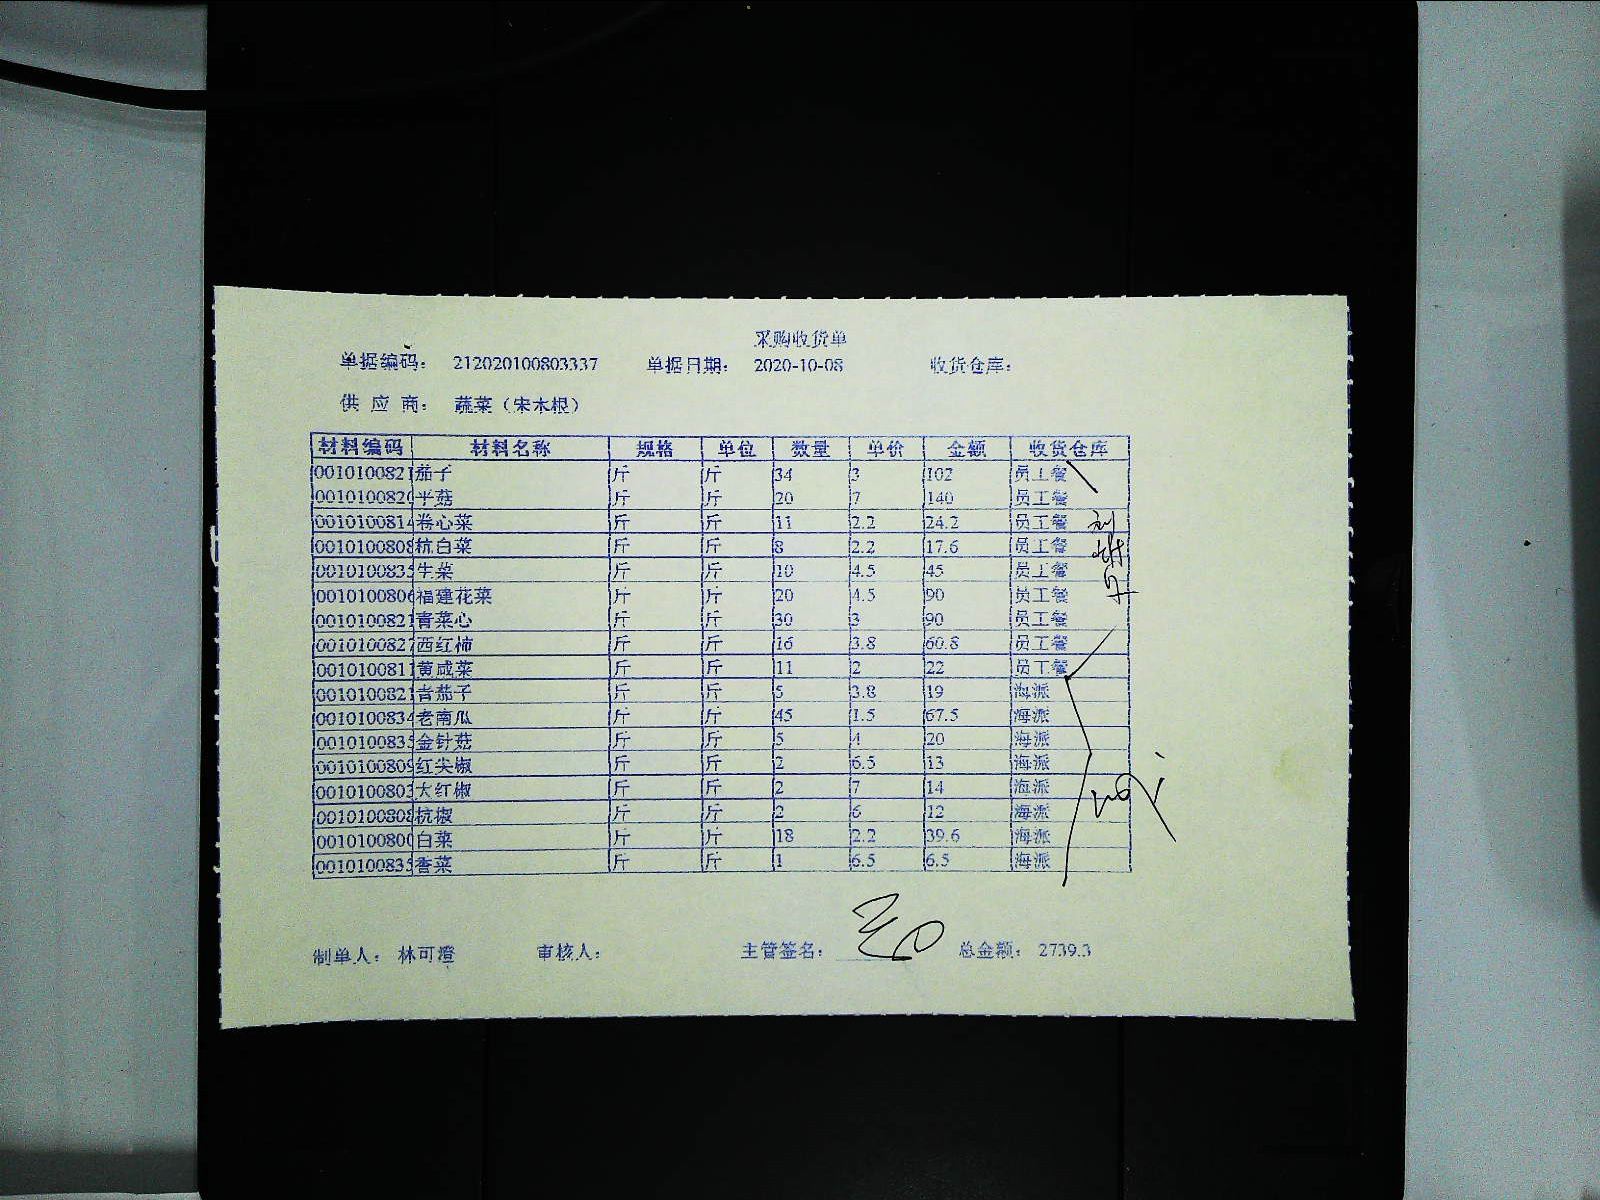 采购收货单
单据编码： 212020100803337 单据日期： 2020-10-08 收货仓库：
供 应 商： 蔬菜（宋木根）
材料编码 材料名称 规格 单位 数量 单价 金额 收货仓库
0010100821 茄子 斤 斤 34 3 102 员工餐
001010082 平菇 斤 斤 20 7 140 员工餐
0010100814 卷心菜 斤 斤 11 2.2 24.2 员工餐
0010100808 杭白菜 斤 斤 8 2.2 17.6 员工餐
0010100835 生菜 斤 斤 10 4.5 45 员工餐
0010100806 福建花菜 斤 斤 20 4.5 90 员工餐
0010100821 青菜心 斤 斤 30 3 90 员工餐
0010100827 西红柿 斤 斤 16 3.8 60.8 员工餐
0010100811 黄咸菜 斤 斤 11 2 22 员工餐
0010100821 青茄子 斤 斤 5 3.8 19 海派
0010100834 老南瓜 斤 斤 45 1.5 67.5 海派
0010100835 金针菇 斤 斤 5 4 20 海派
0010100809 红尖椒 斤 斤 2 6.5 13 海派
0010100803 大红椒 斤 斤 2 7 14 海派
0010100808 杭椒 斤 斤 2 6 12 海派
0010100800 白菜 斤 斤 18 2.2 39.6 海派
0010100835 香菜 斤 斤 1 6.5 6.5 海派
制单人： 林可澄 审核人： 主管签名： 总金额： 2739.3